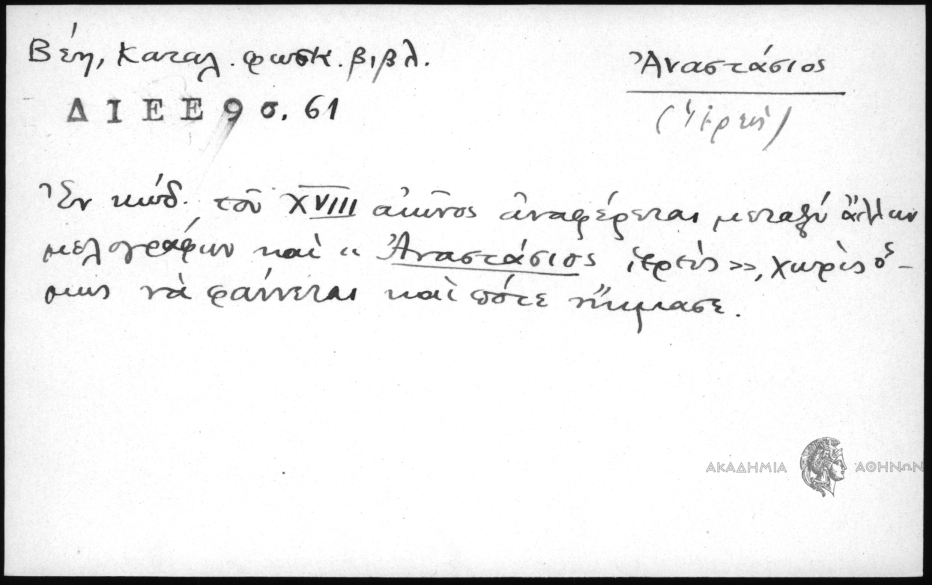 Βέη, Καταλ. φωσκ. βιβλ.
Ἀναστάσιος
ΔΙΕΕ 9 σ. 61
(ἱερεὺς)
Ἐν κώδ. τοῦ XVIII αἰῶνος ἀναφέρεται μεταξὺ ἄλλων
μελογράφων καὶ « Ἀναστάσιος ἱερεὺς», χωρὶς ὅ-
μως νὰ φαίνεται καὶ πότε ἤκμασε.
ΑΚΑΔΗΜΙΑ ΑΘΗΝΩΝ